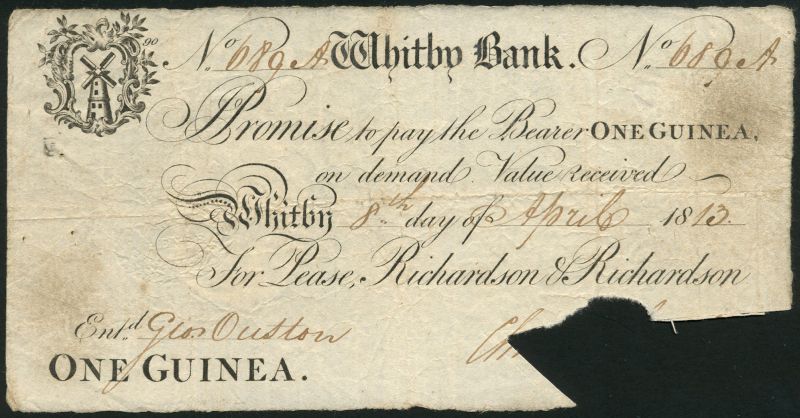 90
No. 689 A Whitby Bank. No. 689 A
I Promise to pay the Bearer ONE GUINEA,
on demand Value received
Whitby 8th day of April 1813
For Pease, Richardson & Richardson
Entd. Geo. Ouston
ONE GUINEA.